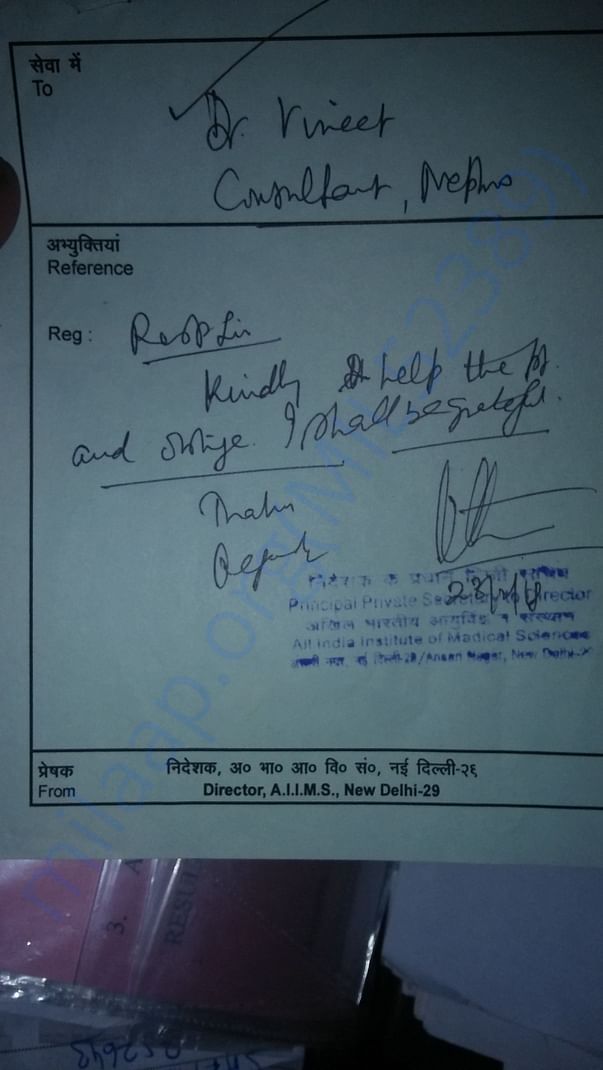 सेवा में
To
Dr. Vineet
Consultant, Nephro
अभ्युक्तियां
Reference
Reg : Resp Sir
Kindly help the pt.
and oblige. I shall be grateful.
Thanks
Regards
निदेशक के प्रधान निजी सचिव
Principal Private Secretary to Director
अखिल भारतीय आयुर्विज्ञान संस्थान
All India Institute of Medical Sciences
अंसारी नगर, नई दिल्ली-29/Ansari Nagar, New Delhi-29
प्रेषक
From
निदेशक, अ० भा० आ० वि० सं०, नई दिल्ली-२६
Director, A.I.I.M.S., New Delhi-29
milaap.org(MIL52389)
3.
RESUL